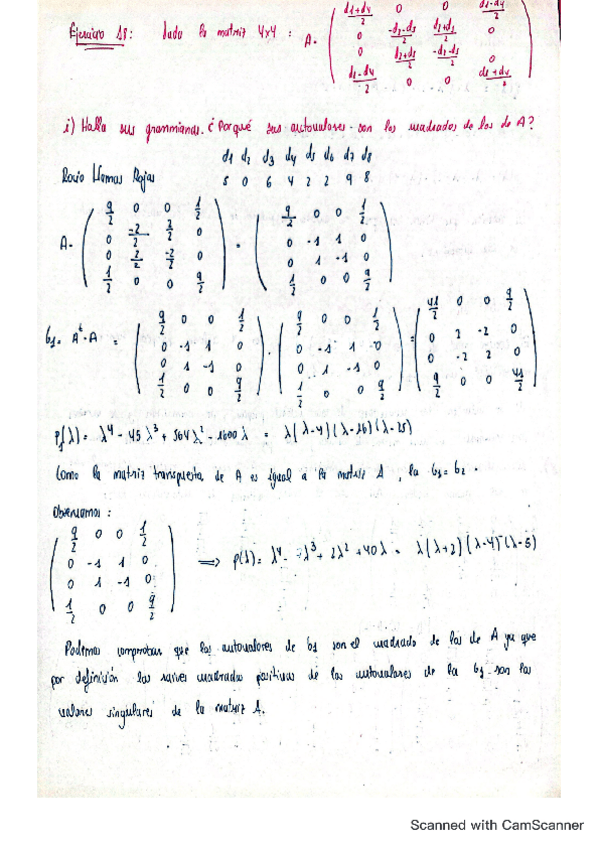 Ejercicio 18: Dada la matriz 4x4: A = ( d1+d4/2 0 0 d1-d4/2
0 -d2-d3/2 d2+d3/2 0
0 d2+d3/2 -d2-d3/2 0
d1-d4/2 0 0 d1+d4/2 )
i) Halla sus grammianas. ¿Porqué sus autovalores son los cuadrados de los de A?
d1 d2 d3 d4 d5 d6 d7 d8
Rocío Llamas Rojas 5 0 6 4 2 2 9 8
A = ( 9/2 0 0 1/2 ) = ( 9/2 0 0 1/2 )
( 0 -2/2 2/2 0 ) ( 0 -1 1 0 )
( 0 2/2 -2/2 0 ) ( 0 1 -1 0 )
( 1/2 0 0 9/2 ) ( 1/2 0 0 9/2 )
G1 = A^t·A = ( 9/2 0 0 1/2 ) · ( 9/2 0 0 1/2 ) = ( 41/2 0 0 9/2 )
( 0 -1 1 0 ) ( 0 -1 1 0 ) ( 0 2 -2 0 )
( 0 1 -1 0 ) ( 0 1 -1 0 ) ( 0 -2 2 0 )
( 1/2 0 0 9/2 ) ( 1/2 0 0 9/2 ) ( 9/2 0 0 41/2 )
P1(λ) = λ^4 - 45λ^3 + 564λ^2 - 1600λ = λ(λ-4)(λ-16)(λ-25)
Como la matriz transpuesta de A es igual a la matriz A, la G1 = G2.
Observamos:
( 9/2 0 0 1/2 )
( 0 -1 1 0 ) ⟹ p(λ) = λ^4 - λ^3 + 2λ^2 + 40λ = λ(λ+2)(λ-4)(λ-5)
( 0 1 -1 0 )
( 1/2 0 0 9/2 )
Podemos comprobar que los autovalores de G1 son el cuadrado de los de A ya que
por definición las raíves cuadradas positivas de los autovalores de la G1 son los
valores singulares de la matriz A.
Scanned with CamScanner